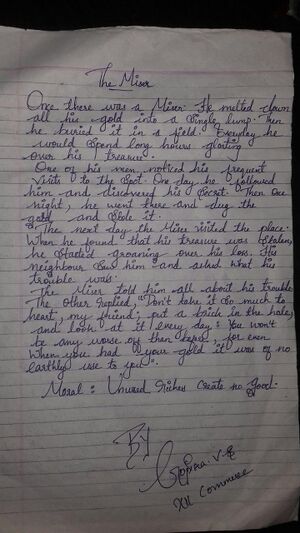 The Miser
Once there was a Miser. He melted down
all his gold into a Single lump. Then
he buried it in a field. Everyday he
would Spend long hours gloating
over his treasure.
One of his men noticed his frequent
visits to the Spot. One day he followed
him and discovered his Secret. Then One
night, he went there and dug the
gold and Stole it.
The next day the Miser visited the place.
When he found that his treasure was Stolen,
he Started groaning over his loss. His
neighbour Saw him and asked what his
trouble was.
The Miser told him all about his trouble.
The other replied, "Don't take it So much to
heart, my friend; put a brick in the hole,
and look at it every day: You won't
be any worse off than before, for even
When you had your gold it was of no
earthly use to you".
Moral: Unused Riches Create no Good.
By
XII Commerce